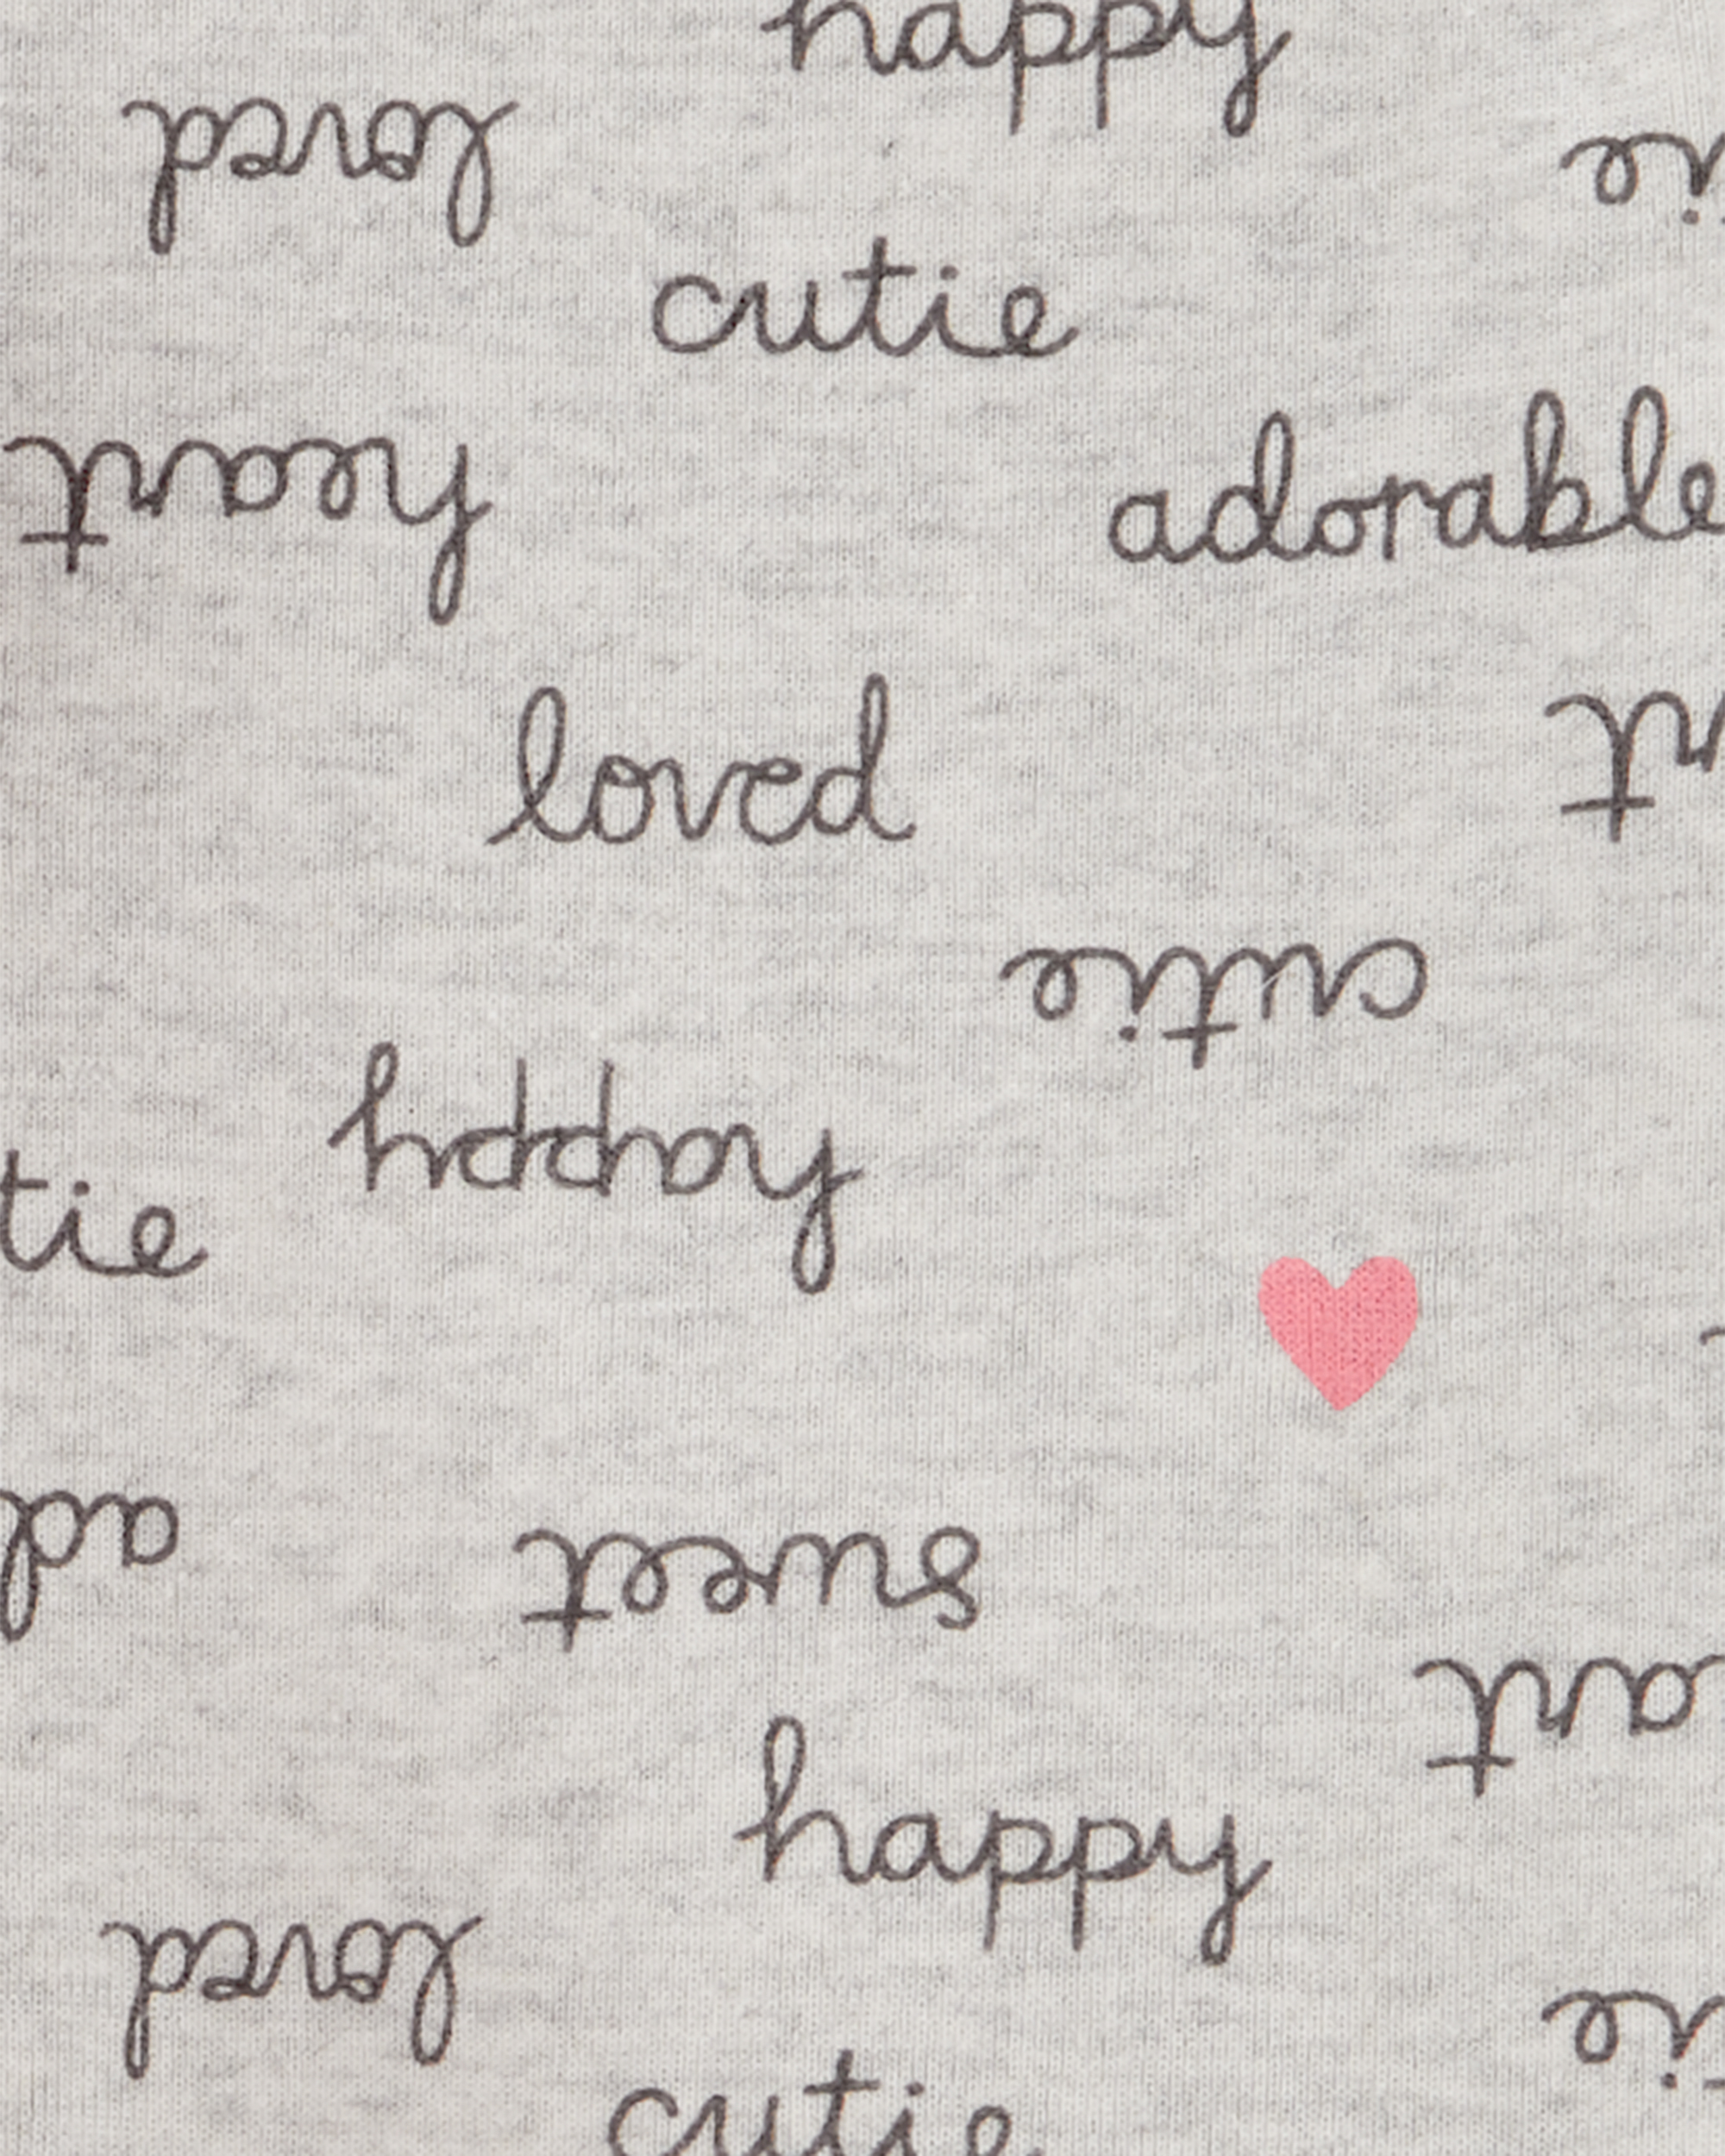 happy
loved
ie
cutie
heart
adorable
loved
rt
cutie
happy
tie
ad
sweet
art
happy
loved
tie
cutie